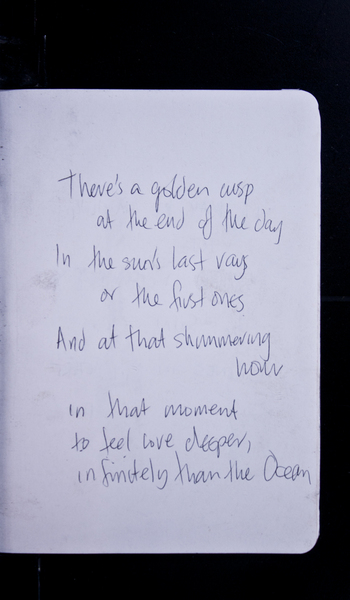 There's a golden cusp
at the end of the day
In the sun's last rays
or the first ones
And at that shimmering
hour
in that moment
to feel love deeper,
infinitely than the Ocean